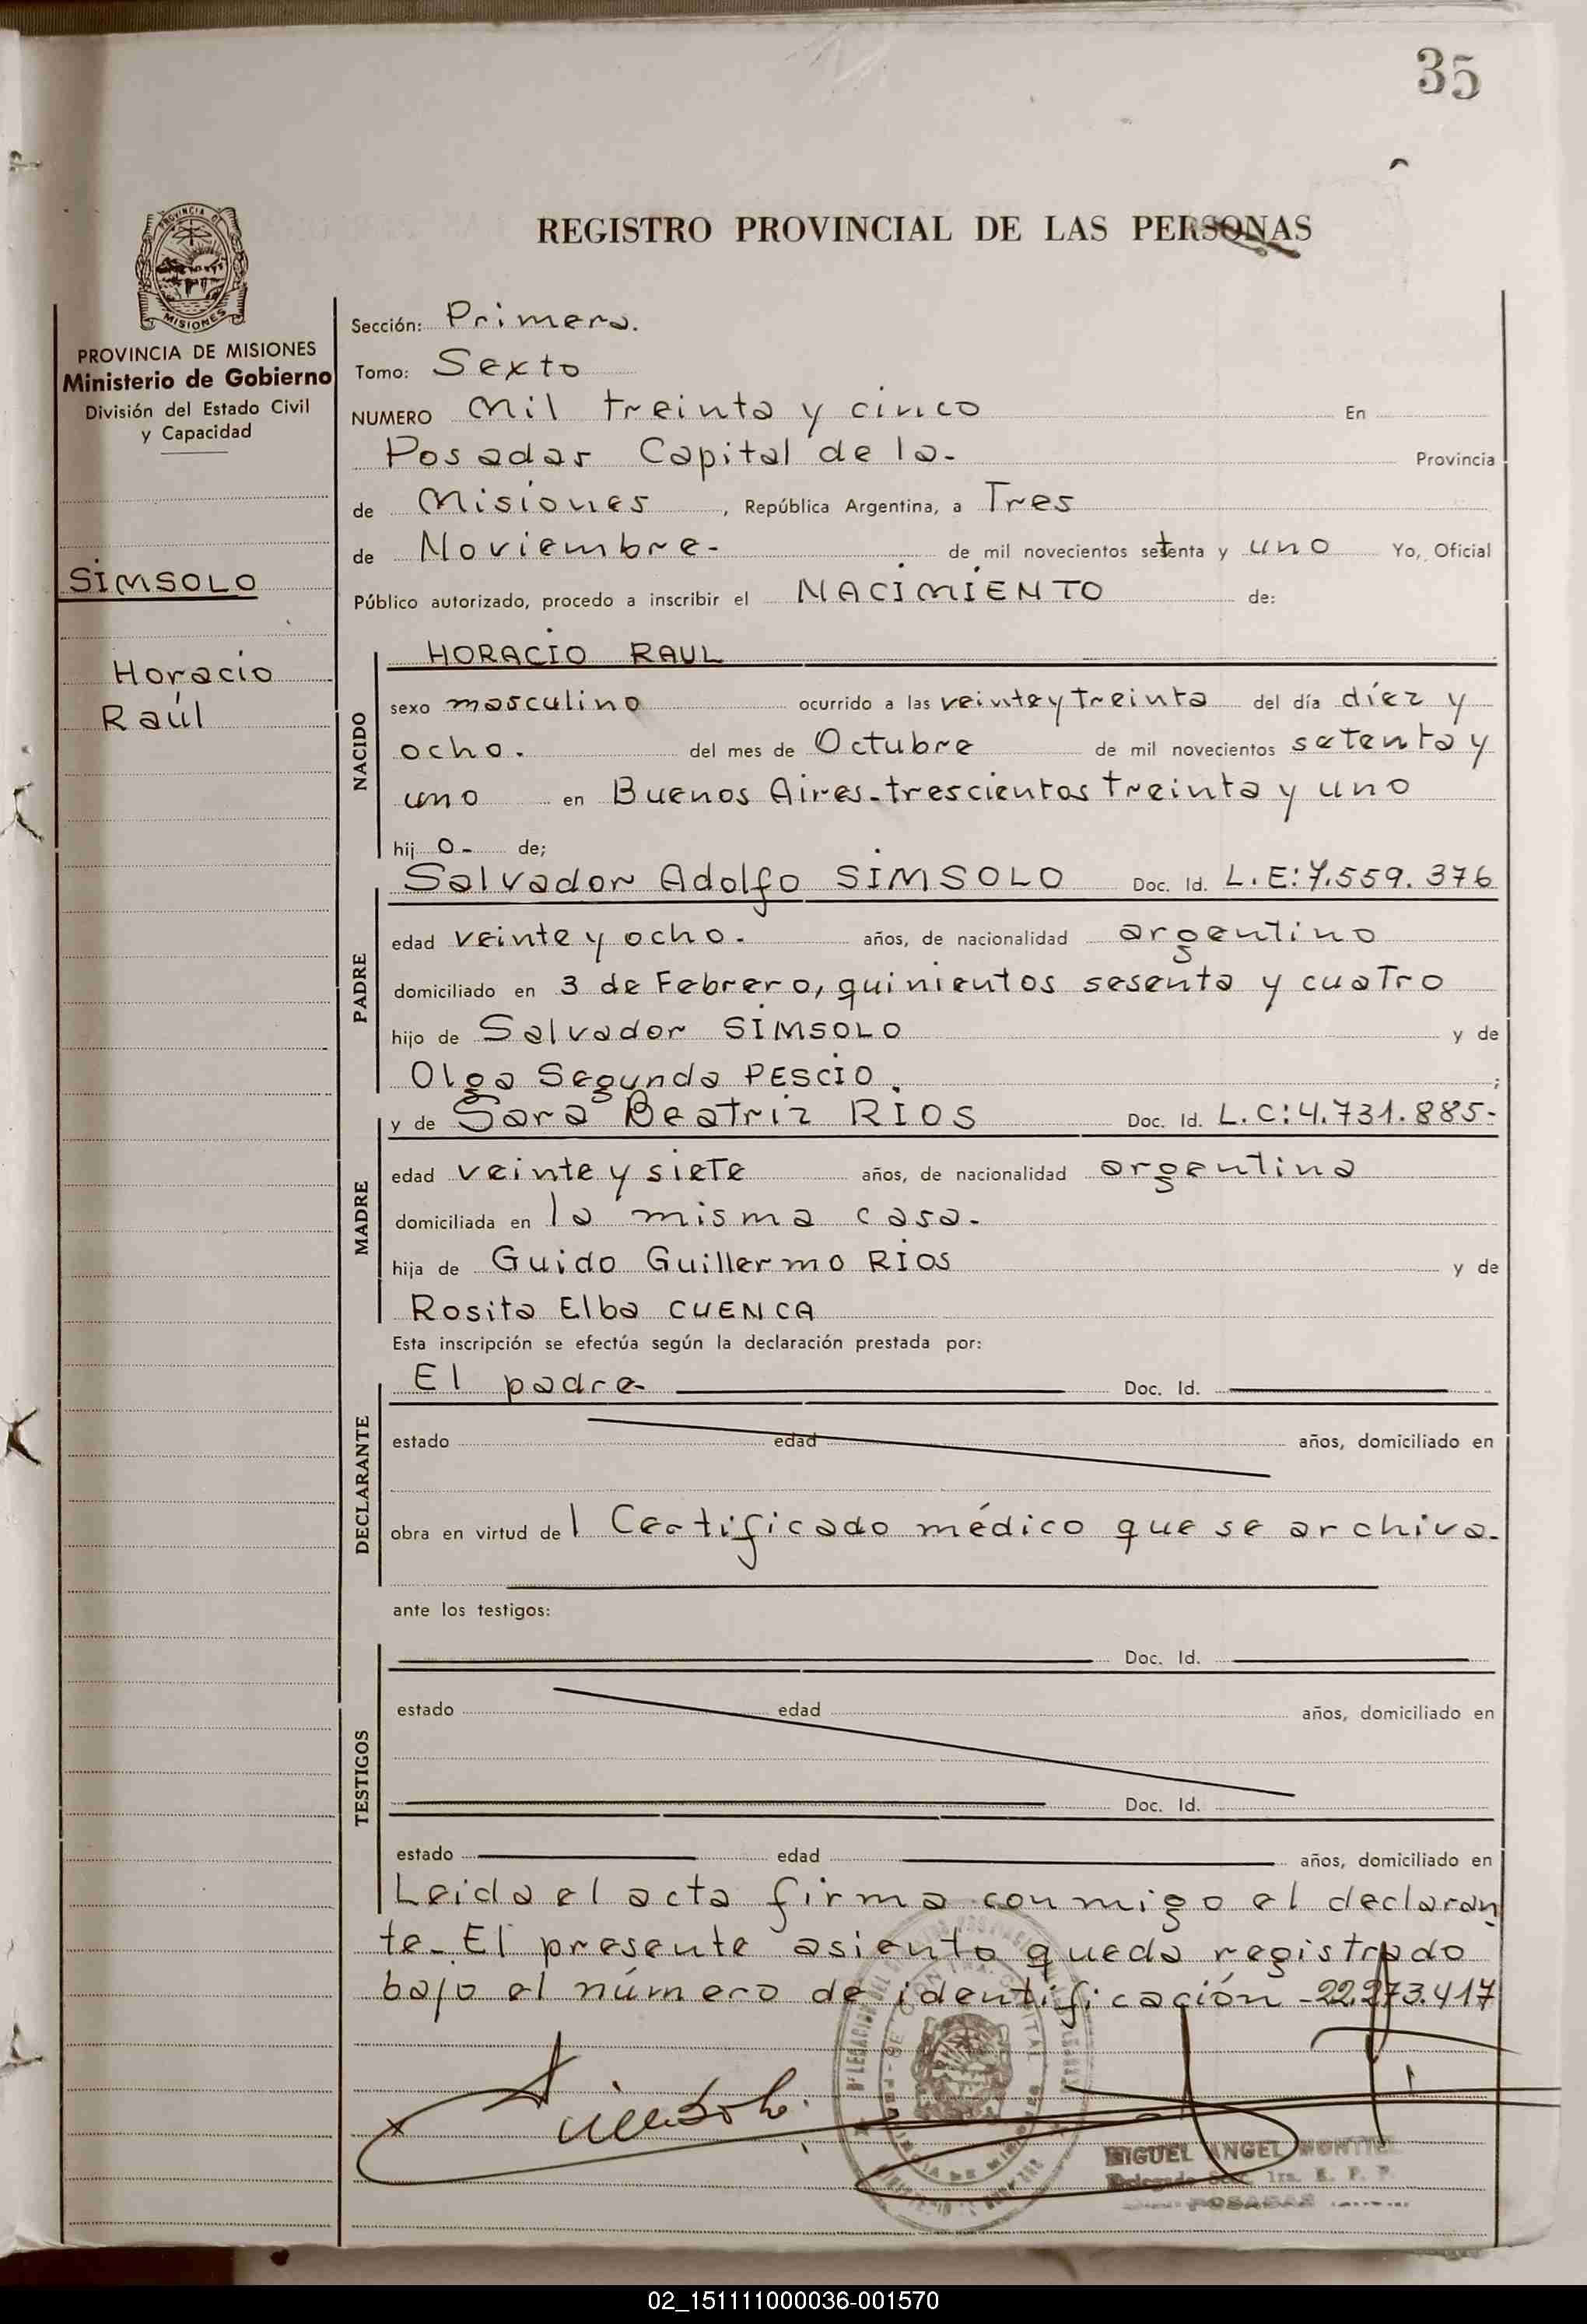 35
REGISTRO PROVINCIAL DE LAS PERSONAS
PROVINCIA DE MISIONES
PROVINCIA DE MISIONES
Ministerio de Gobierno
División del Estado Civil
y Capacidad
SIMSOLO
Horacio
Raúl
Sección: Primera.
Tomo: Sexto
NUMERO Mil treinta y cinco En
Posadas Capital de la- Provincia
de Misiones, República Argentina, a Tres
de Noviembre- de mil novecientos setenta y uno Yo, Oficial
Público autorizado, procedo a inscribir el NACIMIENTO de:
NACIDO
HORACIO RAUL
sexo masculino ocurrido a las veinte y treinta del día diez y
ocho. del mes de Octubre de mil novecientos setenta y
uno en Buenos Aires-trescientos treinta y uno
hij o- de;
PADRE
Salvador Adolfo SIMSOLO Doc. Id. L.E:7.559.376
edad veinte y ocho. años, de nacionalidad argentino
domiciliado en 3 de Febrero, quinientos sesenta y cuatro
hijo de Salvador SIMSOLO y de
Olga Segunda PESCIO. ;
MADRE
y de Sara Beatriz RIOS Doc. Id. L.C:4.731.885-
edad veinte y siete años, de nacionalidad argentina
domiciliada en la misma casa.
hija de Guido Guillermo RIOS y de
Rosita Elba CUENCA
Esta inscripción se efectúa según la declaración prestada por:
DECLARANTE
El padre Doc. Id.
estado edad años, domiciliado en
obra en virtud del Certificado médico que se archiva.
ante los testigos:
TESTIGOS
Doc. Id.
estado edad años, domiciliado en
Doc. Id.
estado edad años, domiciliado en
Leida el acta firma conmigo el declaran
te. El presente asiento queda registrado
bajo el número de identificación -22.273.417
Simsolo
MIGUEL ANGEL MONTIEL
Delegado Secc. 1ra. R. P. P.
POSADAS
02_151111000036-001570